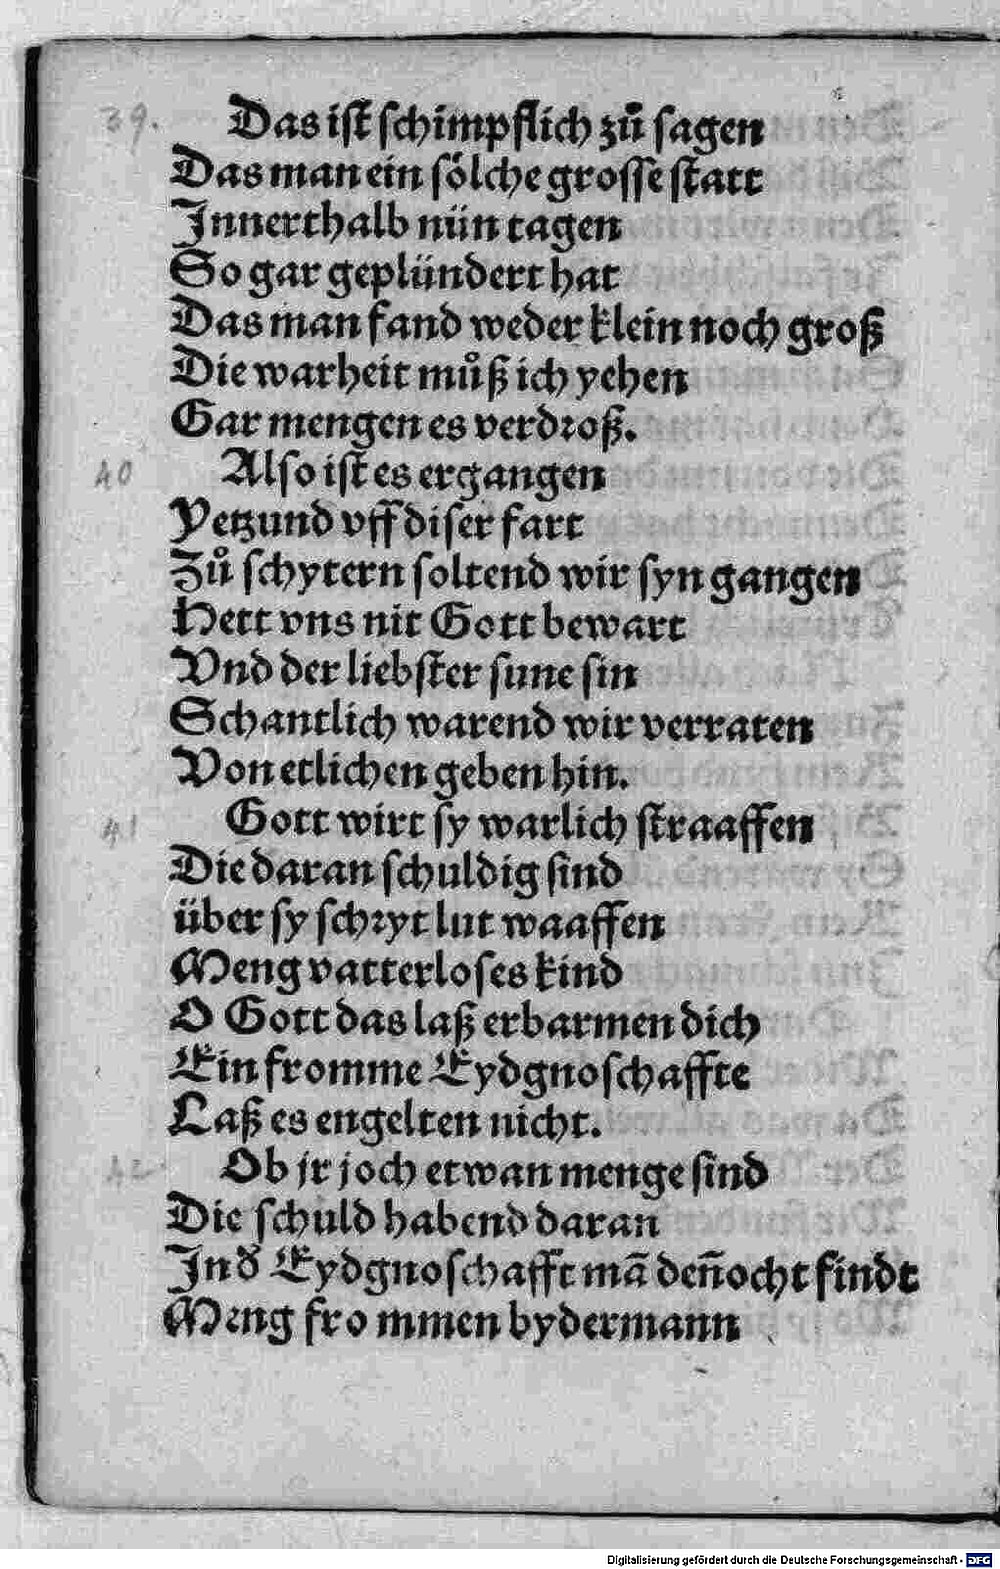 39.
Das ist schimpflich zuͦ sagen
Das man ein soͤlche grosse statt
Innerthalb nün tagen
So gar geplündert hat
Das man fand weder klein noch groß
Die warheit muͦß ich yehen
Gar mengen es verdꝛoß.
40
Also ist es ergangen
Yetzund vff diser fart
Zuͦ schytern soltend wir syn gangen
Hett vns nit Gott bewart
Vnd der liebster sune sin
Schantlich warend wir verraten
Von etlichen geben hin.
41
Gott wirt sy warlich straaffen
Die daran schuldig sind
über sy schꝛyt lut waaffen
Meng vatterloses kind
O Gott das laß erbarmen dich
Ein fromme Eydgnoschaffte
Laß es engelten nicht.
42
Ob jr joch etwan menge sind
Die schuld habend daran
In d' Eydgnoschafft mā den̄ocht findt
Meng fro mmen bydermann
Digitalisierung gefördert durch die Deutsche Forschungsgemeinschaft - DFG